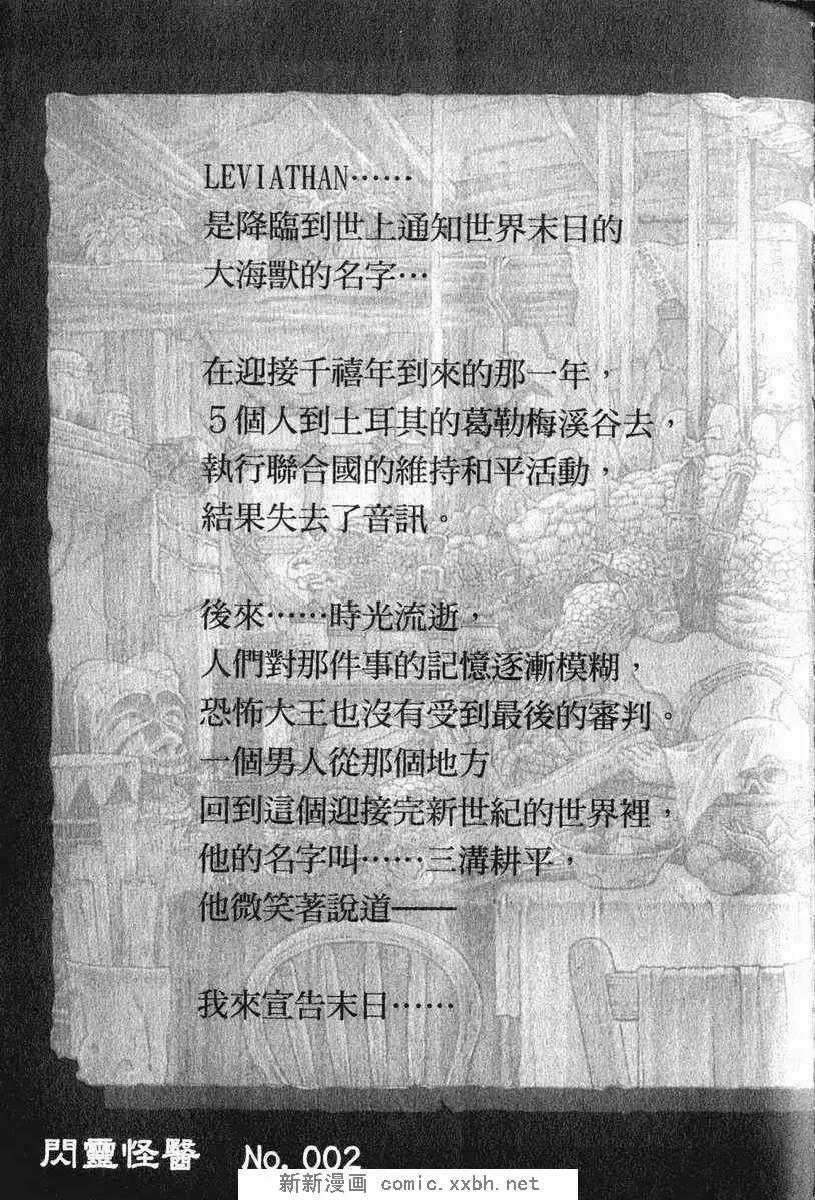 LEVIATHAN……
是降臨到世上通知世界末日的
大海獸的名字…
在迎接千禧年到來的那一年，
５個人到土耳其的葛勒梅溪谷去，
執行聯合國的維持和平活動，
結果失去了音訊。
後來……時光流逝，
人們對那件事的記憶逐漸模糊，
恐怖大王也沒有受到最後的審判。
一個男人從那個地方
回到這個迎接完新世紀的世界裡，
他的名字叫……三溝耕平，
他微笑著說道——
我來宣告末日……
閃靈怪醫 No. 002
新新漫画 comic.xxbh.net